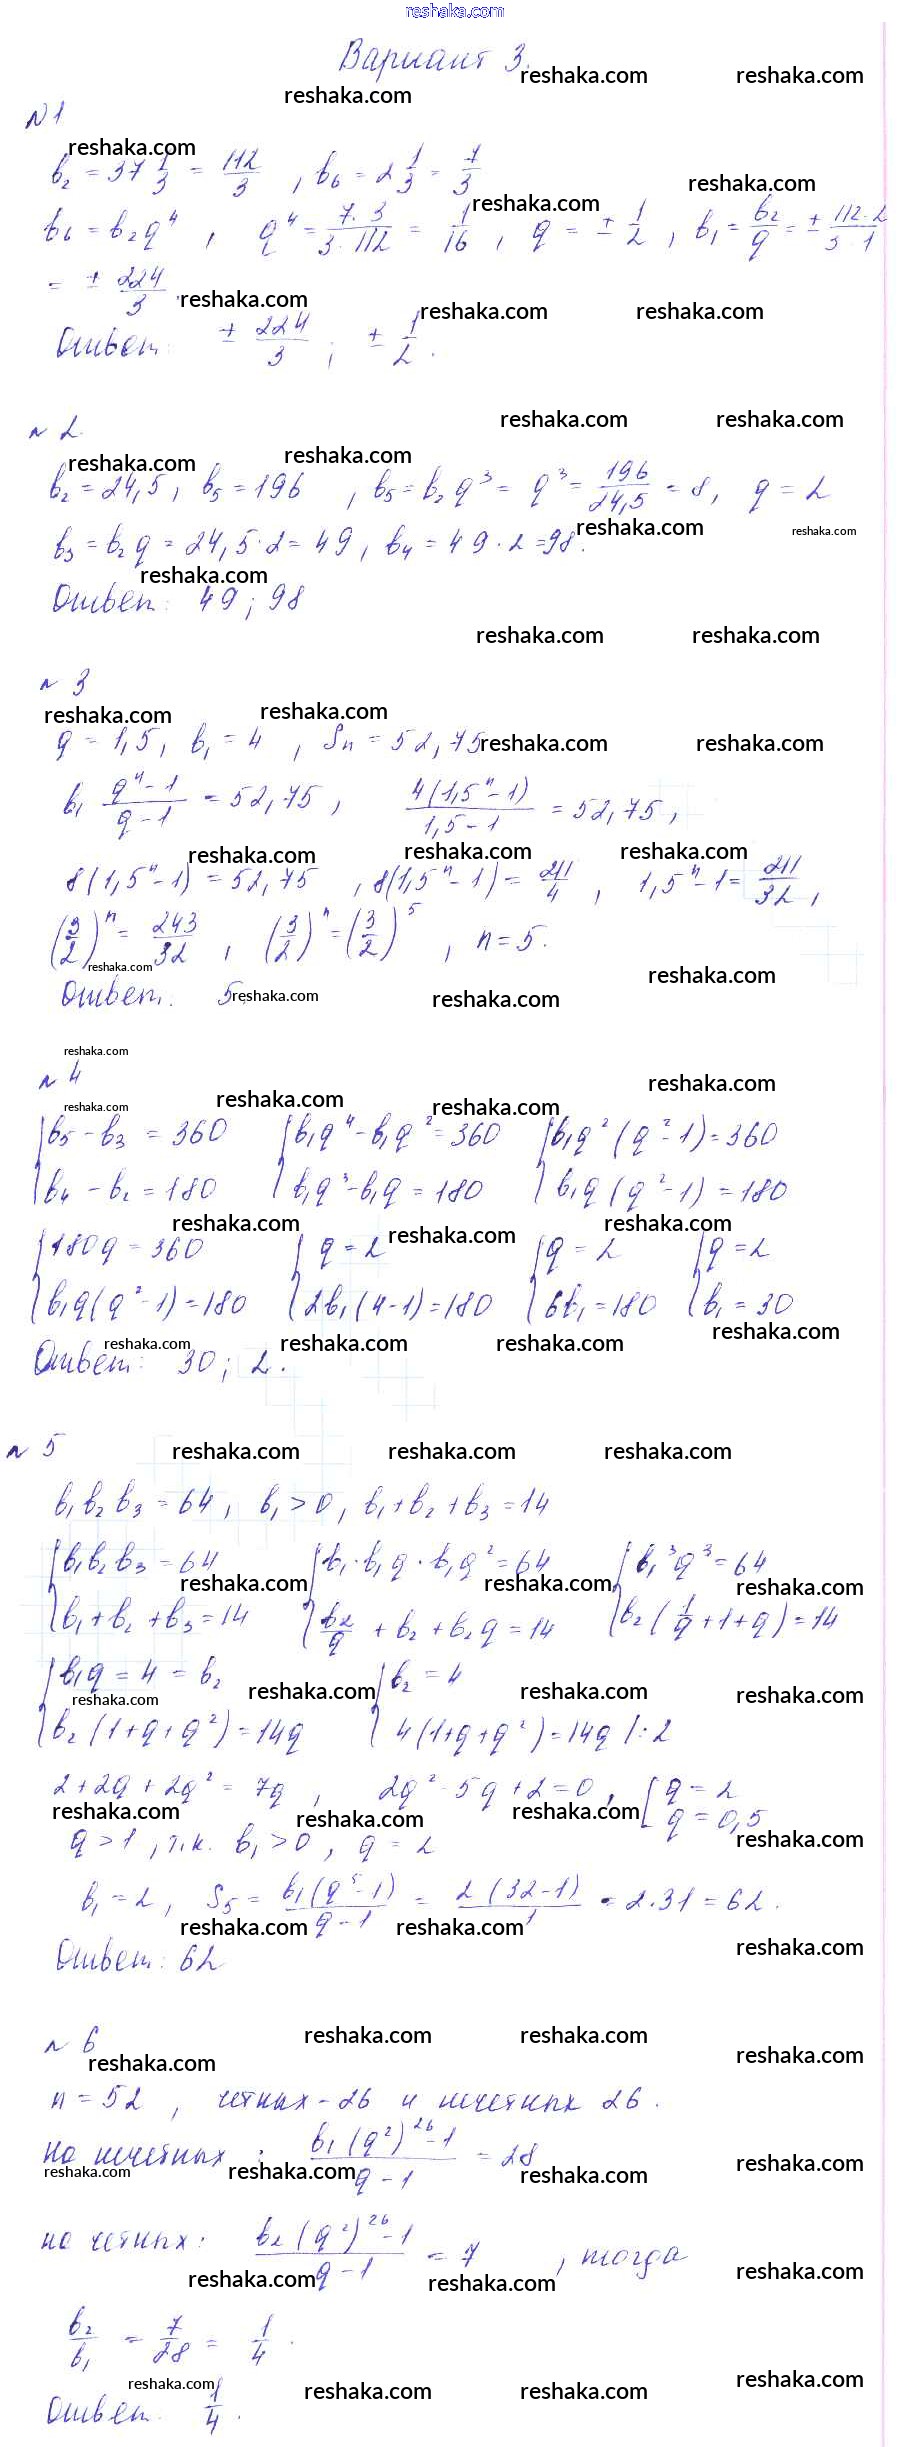 reshaka.com
Вариант 3.
№1
b₂ = 37 1/3 = 112/3 , b₆ = 2 1/3 = 7/3
b₆ = b₂q⁴ , q⁴ = 7·3/3·112 = 1/16 , q = ± 1/2 , b₁ = b₂/q = ± 112·2/3·1
= ± 224/3 .
Ответ: ± 224/3 ; ± 1/2 .
№ 2
b₂ = 24,5 , b₅ = 196 , b₅ = b₂q³ = q³ = 196/24,5 = 8, q = 2
b₃ = b₂q = 24,5·2 = 49 , b₄ = 49·2 = 98.
Ответ: 49 ; 98
№ 3
q = 1,5 , b₁ = 4 , Sₙ = 52,75
b₁ qⁿ-1/q-1 = 52,75 , 4(1,5ⁿ-1)/1,5-1 = 52,75 ,
8(1,5ⁿ-1) = 52,75 , 8(1,5ⁿ-1) = 211/4 , 1,5ⁿ-1 = 211/32 ,
(3/2)ⁿ = 243/32 , (3/2)ⁿ = (3/2)⁵ , n = 5.
Ответ: 5
№ 4
{b₅ - b₃ = 360 {b₁q⁴ - b₁q² = 360 {b₁q²(q²-1) = 360
{b₄ - b₂ = 180 {b₁q³ - b₁q = 180 {b₁q(q²-1) = 180
{180q = 360 {q = 2 {q = 2 {q = 2
{b₁q(q²-1) = 180 {2b₁(4-1) = 180 {6b₁ = 180 {b₁ = 30
Ответ: 30 ; 2 .
№ 5
b₁b₂b₃ = 64 , b₁ > 0 , b₁+b₂+b₃ = 14
{b₁b₂b₃ = 64 {b₁·b₁q·b₁q² = 64 {b₁³q³ = 64
{b₁+b₂+b₃ = 14 {b₂/q + b₂ + b₂q = 14 {b₂(1/q+1+q) = 14
{b₁q = 4 = b₂ {b₂ = 4
{b₂(1+q+q²) = 14q {4(1+q+q²) = 14q |:2
2+2q+2q² = 7q , 2q²-5q+2 = 0 , [q = 2
[q = 0,5
q > 1 , т.к. b₁ > 0 , q = 2
b₁ = 2 , S₅ = b₁(q⁵-1)/q-1 = 2(32-1)/1 = 2·31 = 62 .
Ответ: 62
№ 6
n = 52 , четных - 26 и нечетных 26 .
на нечетных : b₁(q²)²⁶-1/q-1 = 28
на четных : b₂(q²)²⁶-1/q-1 = 7 , тогда
b₂/b₁ = 7/28 = 1/4 .
Ответ. 1/4 .